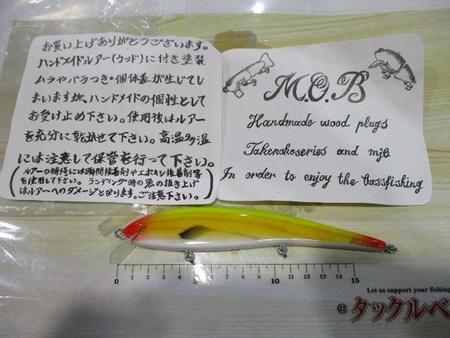 お買い上げありがとうございます。
ハンドメイドルアー(ウッド)に付き塗装
ムラやバラつき・個体差が生じてし
まいますが、ハンドメイドの個性として
お受け止め下さい。使用後はルアー
を充分に乾かせて下さい。高温多湿
には注意して保管を行って下さい。
(ルアーの補修には瞬間接着剤やエポキシ接着剤等
を使用して下さい。ランディング時の魚の抜き上げ
はルアーへのダメージとなります。ご注意下さい。)
M.O.B
Handmade wood plugs
Takenokoseries and mjb
In order to enjoy the bassfishing
0 5 10 15
Let us support your fishing
@タックルベ